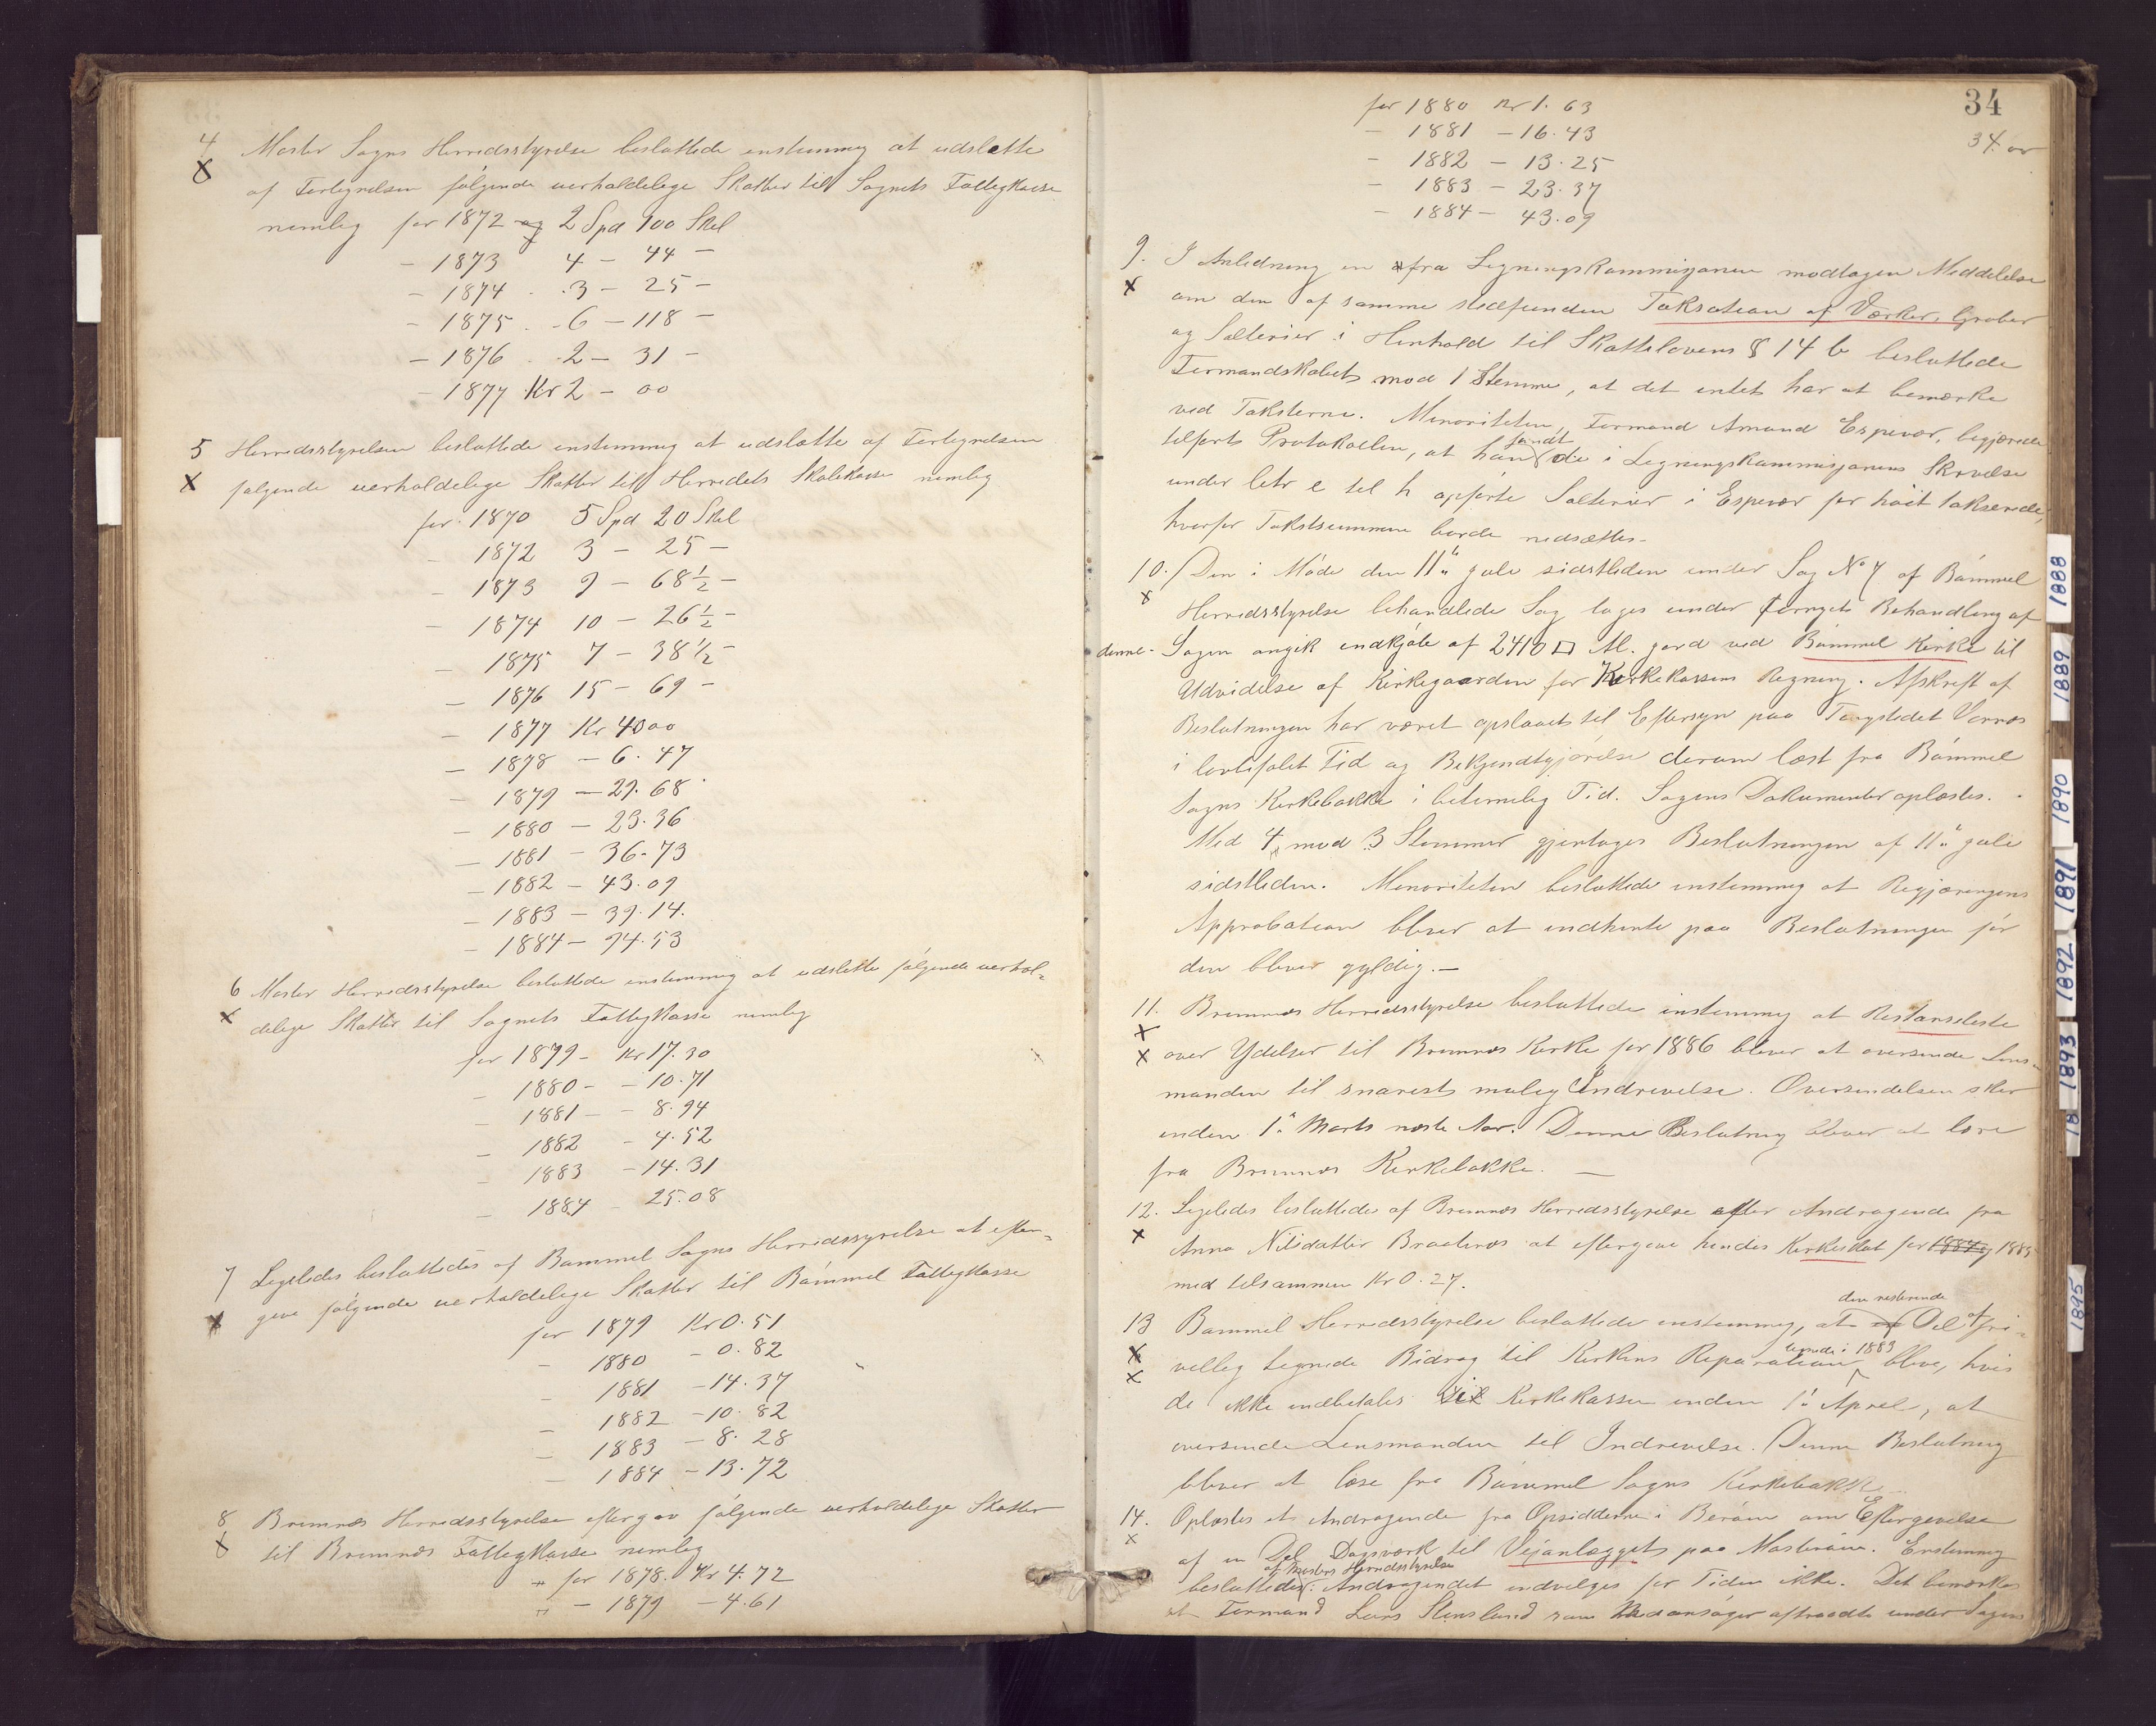 4 Moster Sogns Herredsstyrelse besluttede enstemmig at udslette
af Forlignelsen følgende uerholdelige Skatter til Sognets Fattigkasse
nemlig for 1872 2 Spd 100 Skel
- 1873 4 - 44 -
- 1874 . . 3 - 25 -
- 1875 . . 6 - 118 -
- 1876 . . 2 - 31 -
- 1877 Kr 2 - 00
5 Herredsstyrelsen besluttede enstemmig at udslette af Forlignelsen
X følgende uerholdelige Skatter til Herredets Skolekasse nemlig
for 1870 5 Spd 20 Skel
- 1872 3 - 25 -
- 1873 9 - 68 1/2 -
- 1874 10 - 26 1/2 -
- 1875 7 - 38 1/2 -
- 1876 15 - 69 -
- 1877 Kr 40 00
- 1878 - 6.47
- 1879 - 29.68
- 1880 - 23.36
- 1881 - 36.73
- 1882 - 43.09
- 1883 - 39.14.
- 1884 - 94.53
6 Moster Herredsstyrelse besluttede enstemmig at udslette følgende uerhol-
X delige Skatter til Sognets Fattigkasse nemlig
for 1879 - Kr 17.30
- 1880 - - 10.71
- 1881 - - 8.94
- 1882 - 4.52
- 1883 - 14.31
- 1884 25.08
7 Ligeledes besluttedes af Bømmel Sogns Herredsstyrelse at efter-
X give følgende uerholdelige Skatter til Bømmel Fattigkasse
for 1879 Kr 0.51
- 1880 - 0.82
- 1881 - 14.37
- 1882 - 10.82
- 1883 - 8.28
- 1884 - 13.72
8 Bremnæs Herredsstyrelse eftergav følgende uerholdelige Skatter
til Bremnæs Fattigkasse nemlig
" for 1878. Kr 4.72
" - 1879 - 4.61
34
for 1880 Kr 1.63
- 1881 - 16.43
- 1882 - 13.25
- 1883 - 23.37
- 1884 - 43.09
9. I Anledning en fra Ligningskommissjonen modtagen Meddelelse
X om den af samme stedfunden Taksation af Værker, Gruber
og Salterier i Henhold til Skattelovens § 14 b besluttede
Formandskabet mod 1 Stemme, at det intet har at bemærke
ved Taksterne. Minoriteten, Formand Amund Espevær, begjærede
tilført Protokollen, at han fandt de i Ligningskommissjonens Skrivelse
under litr e til h opførte Salterier i Espevær for høit takserede,
hvorfor Takstsummen burde nedsættes.
10. Den i Møde den 11" Juli sidstleden under Sag No 7 af Bømmel
X Herredsstyrelse behandlede Sag toges under fornyet Behandling af
denne. Sagen angik indkjøb af 2410 □ Al. jord ved Bømmel Kirke til
Udvidelse af Kirkegaarden for Kirkekassens Regning. Afskrift af
Beslutningen har været opslaaet til Eftersyn paa Tingstedet Vornes
i lovbefalet Tid og Bekjendtgjørelse derom læst fra Bømmel
Sogns Kirkebakke i betimelig Tid. Sagens Dokumenter oplæstes.
Med 4 mod 3 Stemmer gjentoges Beslutningen af 11" juli
sidstleden. Minoriteten besluttede enstemmig at Regjæringens
Approbation bliver at indhente paa Beslutningen før
den bliver gyldig. -
11. Bremnæs Herredsstyrelse besluttede enstemmig at Restanseliste
X
X over Ydelser til Bremnæs Kirke for 1886 bliver at oversende Lens-
manden til snarest mulig Inddrivelse. Oversendelsen sker
inden 1" Marts næste Aar. Denne Beslutning bliver at læse
fra Bremnæs Kirkebakke. -
12. Ligeledes besluttede af Bremnæs Herredsstyrelse efter Andragende fra
X Anna Nilsdatter at eftergive hendes Kirkeskat for 1884 og 1885
med tilsammen Kr 0.27.
den resterende
13 Bømmel Herredsstyrelse besluttede enstemmig, at Del af fri-
X villig tegnede Bidrag til Kirkens Reparation tegnede i 1883 blive, hvis
X
de ikke indbetales til Kirkekassen inden 1" April, at
oversende Lensmanden til Indrivelse. Denne Beslutning
bliver at læse fra Bømmel Sogns Kirkebakke
14. Oplæstes et Andragende fra Opsidderne i Børøen om Eftergivelse
X af en Del Dagsværk til Vejanlægget paa Mosterøen. Enstemmig
af Mosters Herredsstyrelse
besluttedes: Andragendet indvilges for Tiden ikke. Det bemærkes
at Formand Lars Stensland som Medansøger aftraadte under Sagens
1888
1889
1890
1891
1892
1893
18
1895